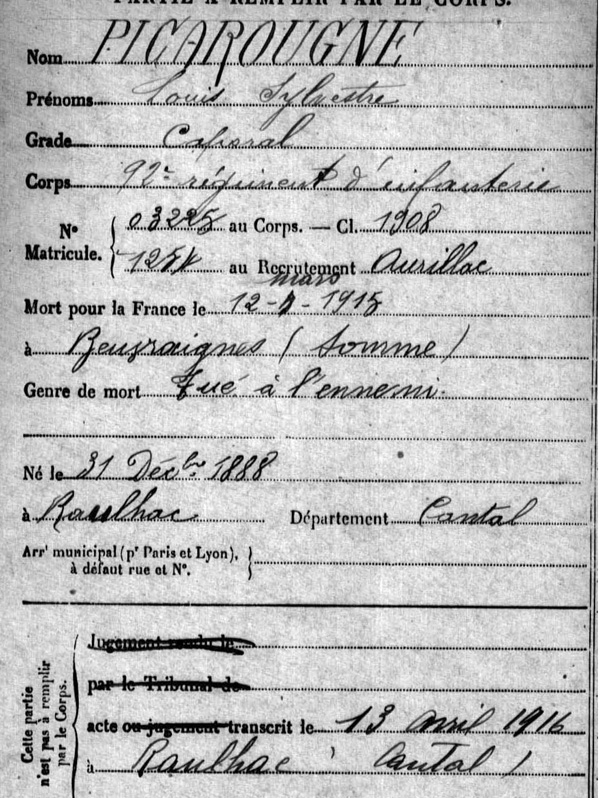 PARTIE À REMPLIR PAR LE CORPS.
Nom PICAROUGNE
Prénoms Louis Sylvestre
Grade Caporal
Corps 92e régiment d'infanterie
N° Matricule. { 03225 au Corps. — Cl. 1908
au Recrutement Aurillac
mars
Mort pour la France le 12 - - 1915
à Beuvraignes (Somme)
Genre de mort Tué à l'ennemi.
Né le 31 Décbre 1888
à Raulhac Département Cantal
Arrt municipal (pr Paris et Lyon), }
à défaut rue et N°.
Cette partie n'est pas à remplir par le Corps.
Jugement rendu le
par le Tribunal de
acte ou jugement transcrit le 13 avril 1916
à Raulhac (Cantal)